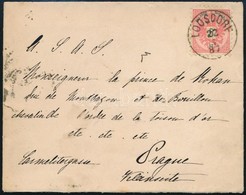 LOOSDORF
A. S. A. S.
Monseigneur le prince de Rohan
duc de Montbazon et de Bouillon
chevalier de l'ordre de la toison d'or
etc. etc. etc
Carmelitergasse Prague
Kleinseite